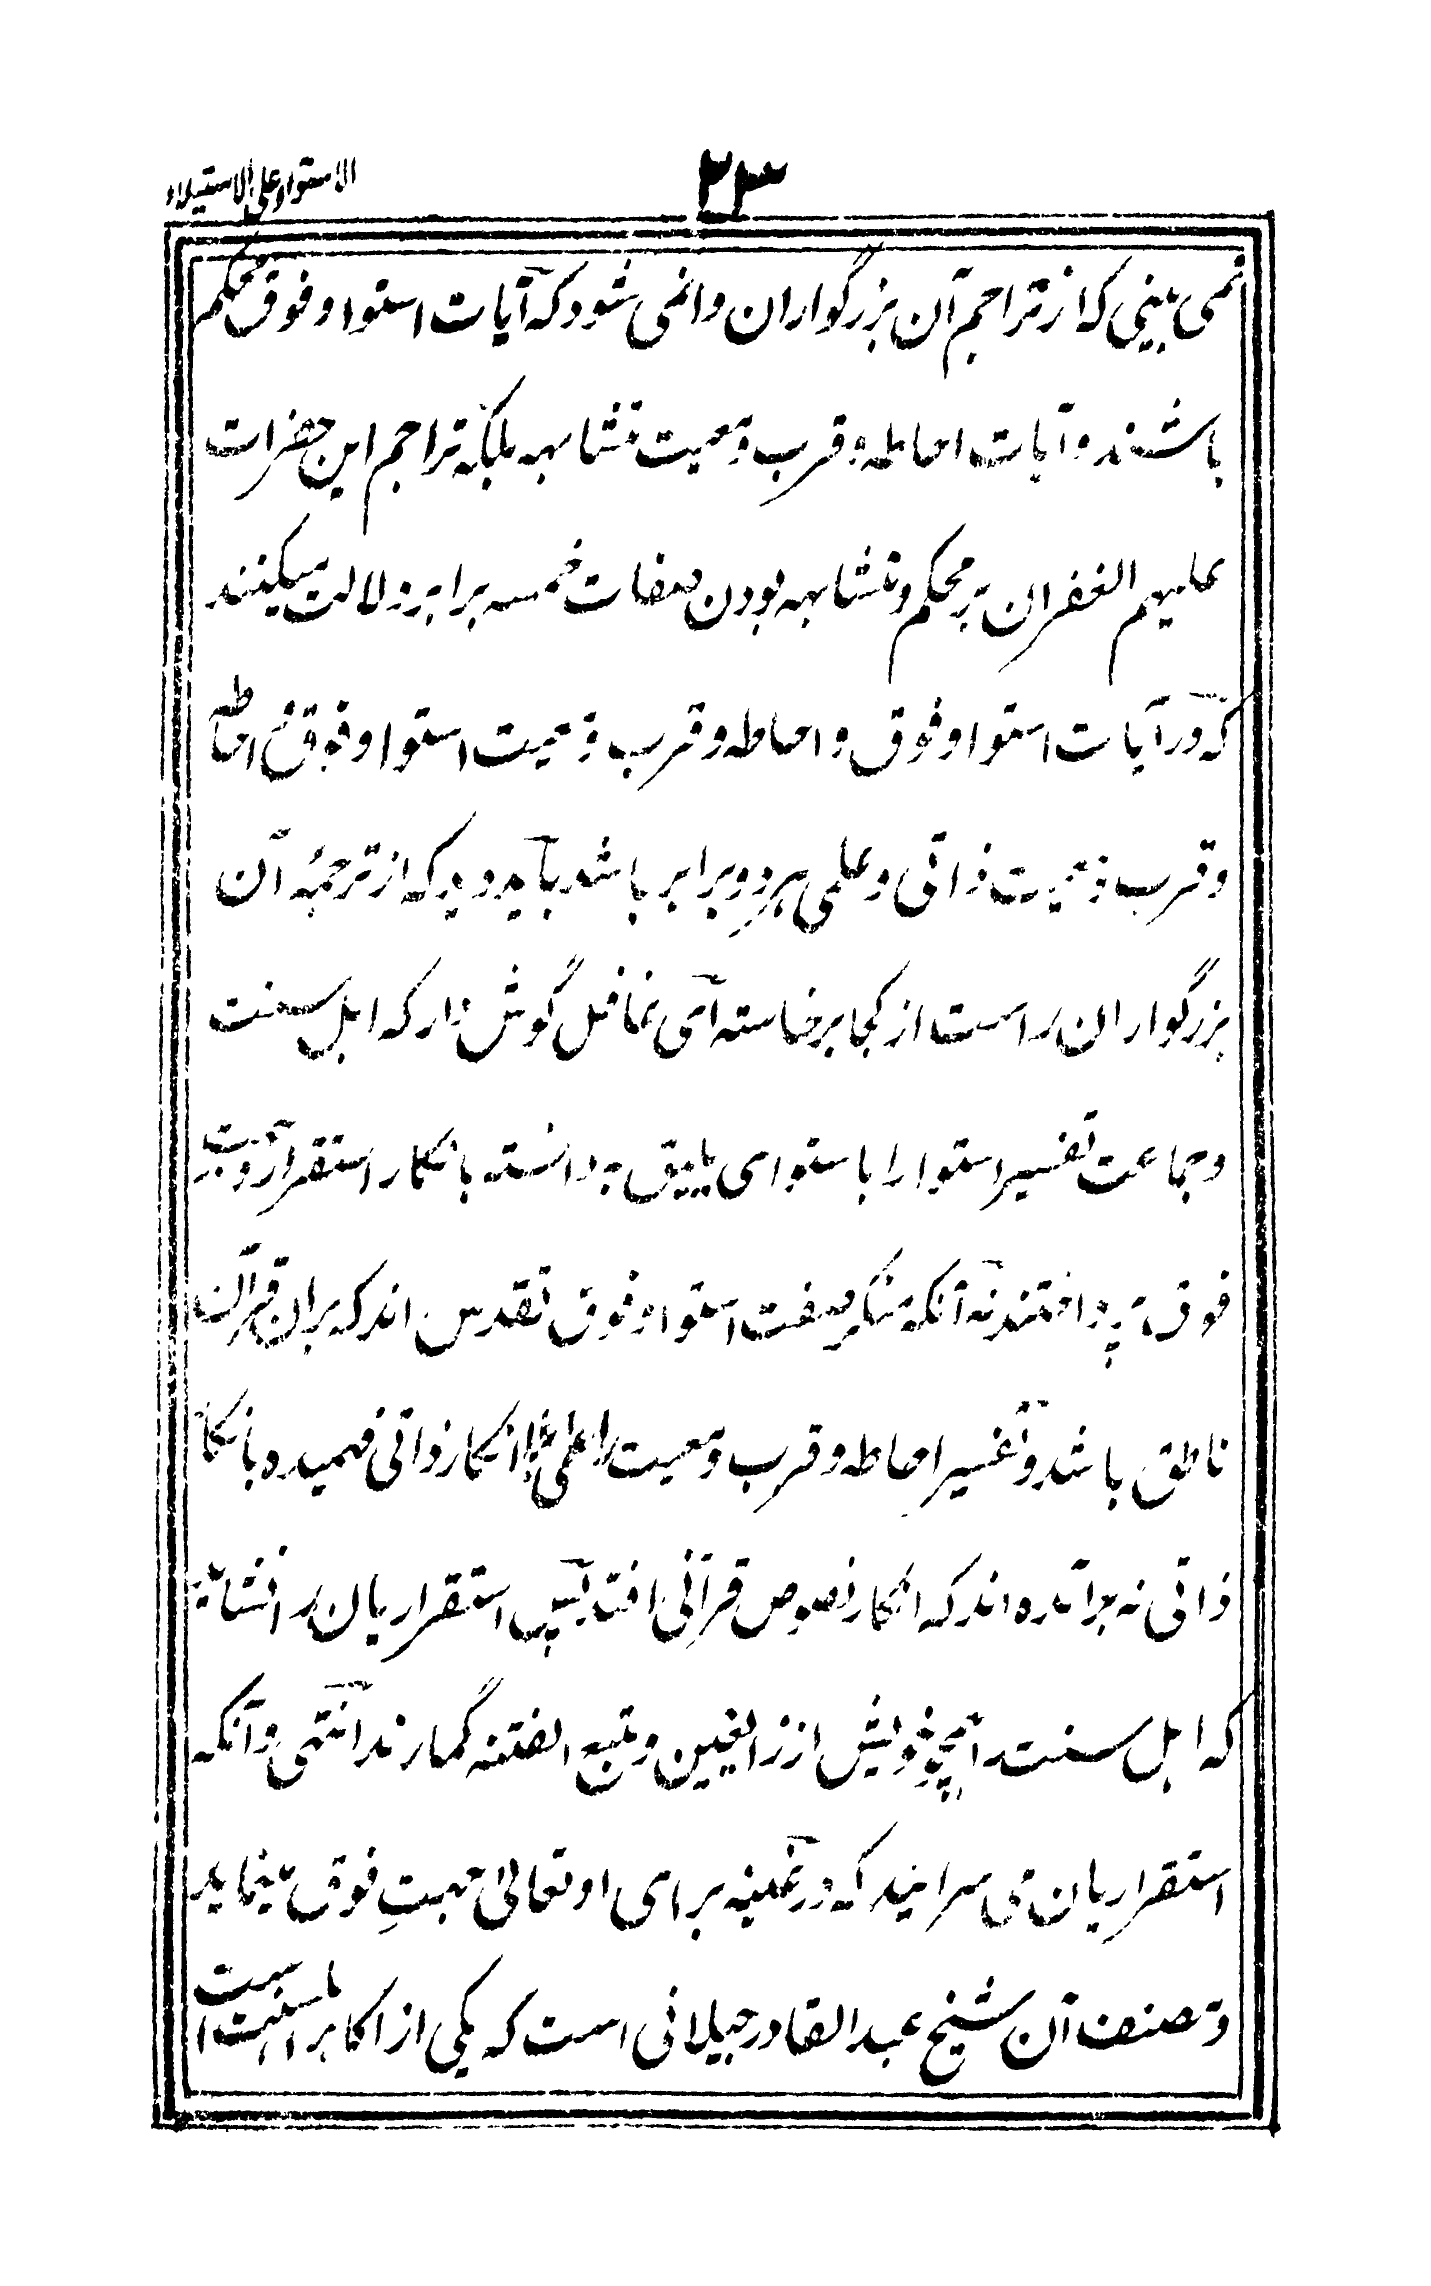 ۲۳
الاستواء علی الاستیلاء
نمی بینی که از تراجم آن بزرگواران وانمی شود که آیات استوا و فوق محکم
باشند و آیات احاطه و قرب و معیت متشابهه بلکه تراجم این حضرات
علیهم الغفران بر محکم و متشابهه بودن صفات خمسه برابر دلالت میکنند
که در آیات استوا و فوق و احاطه و قرب و معیت استوا و فوق احاطه
و قرب و معیت ذاتی و علمی هر دو برابر باشد باید دید که از ترجمهٔ آن
بزرگواران راست از کجا برخاسته ای غافل گوش دار که اهل سنت
و جماعت تفسیر استوا را باستوای یلیق به دانسته بانکار استقرار و جهت
فوق پرداختند نه آنکه منکر صفت استوا و فوق تقدس اند که بران قرآن
ناطق باشد و تفسیر احاطه و قرب و معیت را علمی انکار ذاتی فهمیده بانکار
ذاتی نه برآمده اند که انکار نصوص قرآنی افتد پس استقراریان را نشاید
که اهل سنت را همچو خویش از زایغین و متبع الفتنه گمارند انتهی و آنکه
استقراریان می سرایند که در غنیه برای او تعالی جهتِ فوق مینماید
و مصنف آن شیخ عبد القادر جیلانی است که یکی از اکابر اهل سنت است